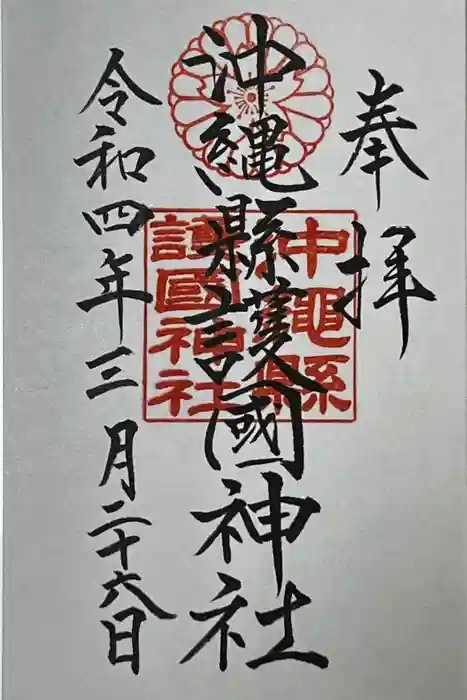 奉拝
沖縄縣護國神社
沖縄縣
護國神社
令和四年三月二十六日